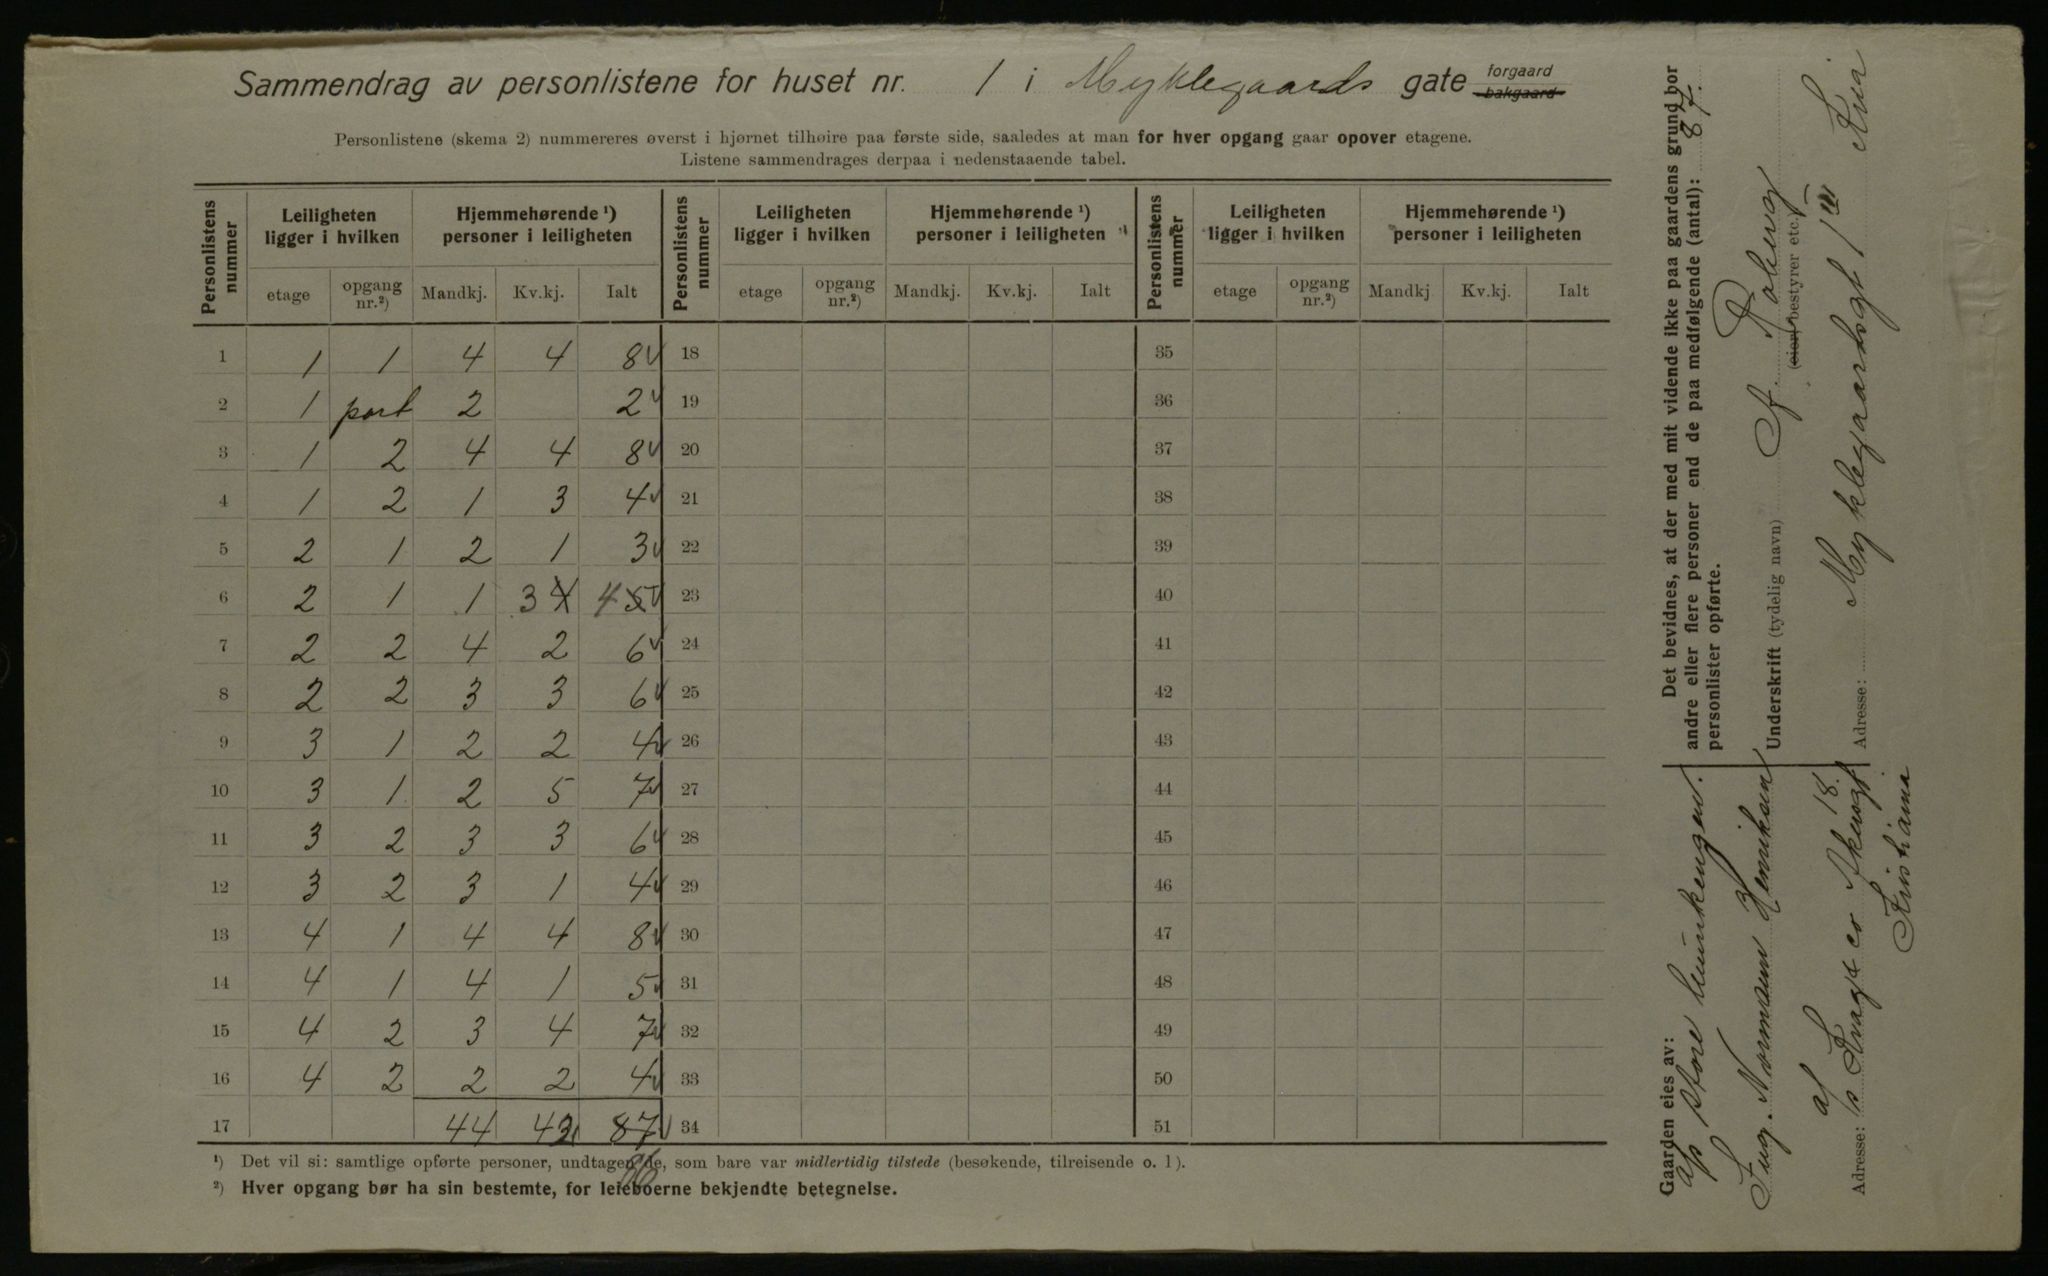 Sammendrag av personlistene for huset nr. 1 i Myklegaards gate forgaard bakgaard
Personlistene (skema 2) nummereres øverst i hjørnet tilhøire paa første side, saaledes at man for hver opgang gaar opover etagene.
Listene sammendrages derpaa i nedenstaaende tabel.
Personlistens nummer | Leiligheten ligger i hvilken | Hjemmehørende ¹) personer i leiligheten | Personlistens nummer | Leiligheten ligger i hvilken | Hjemmehørende ¹) personer i leiligheten | Personlistens nummer | Leiligheten ligger i hvilken | Hjemmehørende ¹) personer i leiligheten
etage | opgang nr.²) | Mandkj. | Kv.kj. | Ialt | etage | opgang nr.²) | Mandkj. | Kv.kj. | Ialt | etage | opgang nr.²) | Mandkj | Kv.kj. | Ialt
1 | 1 | 1 | 4 | 4 | 8 v | 18 | 35
2 | 1 | port | 2 | | 2 v | 19 | 36
3 | 1 | 2 | 4 | 4 | 8 v | 20 | 37
4 | 1 | 2 | 1 | 3 | 4 v | 21 | 38
5 | 2 | 1 | 2 | 1 | 3 v | 22 | 39
6 | 2 | 1 | 1 | 3 4 | 4 5 v | 23 | 40
7 | 2 | 2 | 4 | 2 | 6 v | 24 | 41
8 | 2 | 2 | 3 | 3 | 6 v | 25 | 42
9 | 3 | 1 | 2 | 2 | 4 v | 26 | 43
10 | 3 | 1 | 2 | 5 | 7 v | 27 | 44
11 | 3 | 2 | 3 | 3 | 6 v | 28 | 45
12 | 3 | 2 | 3 | 1 | 4 v | 29 | 46
13 | 4 | 1 | 4 | 4 | 8 v | 30 | 47
14 | 4 | 1 | 4 | 1 | 5 v | 31 | 48
15 | 4 | 2 | 3 | 4 | 7 v | 32 | 49
16 | 4 | 2 | 2 | 2 | 4 v | 33 | 50
17 | | | 44 | 43 | 87 v | 34 | 51
86
¹) Det vil si: samtlige opførte personer, undtagen de, som bare var midlertidig tilstede (besøkende, tilreisende o. l).
²) Hver opgang bør ha sin bestemte, for leieboerne bekjendte betegnelse.
Det bevidnes, at der med mit vidende ikke paa gaardens grund bor
andre eller flere personer end de paa medfølgende (antal): 87.
personlister opførte.
Underskrift (tydelig navn)
(eier, bestyrer etc.)
Adresse: Myklegaardsgt 1 III Kria
Gaarden eies av:
Normann Henriksen
Adresse:
18.
Kristiania